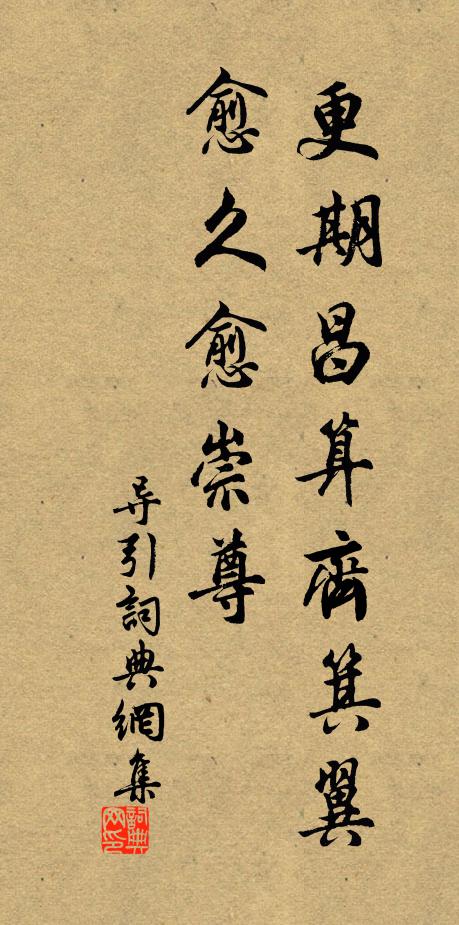 更期昌算齊箕翼
愈久愈崇尊
导引詞典網集
詞典网印